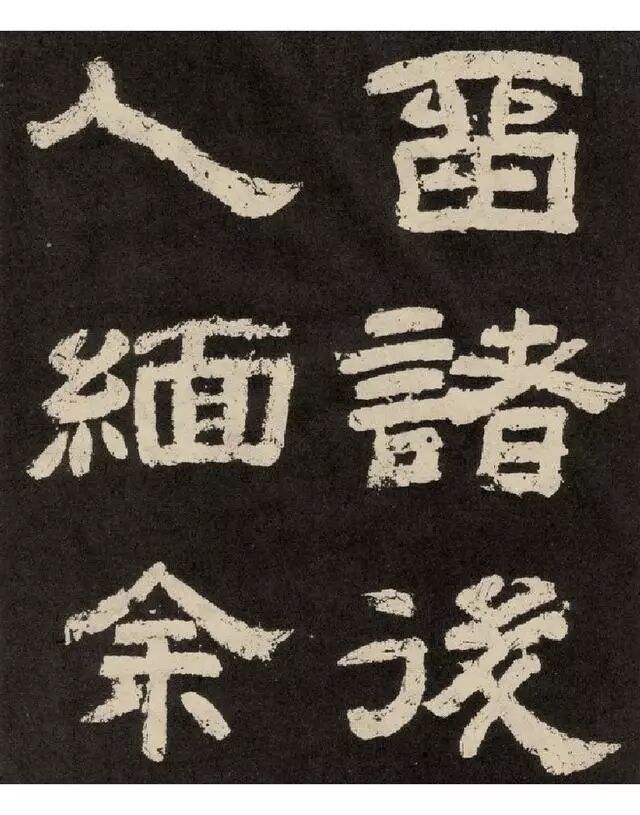 畱諸後
人緬余